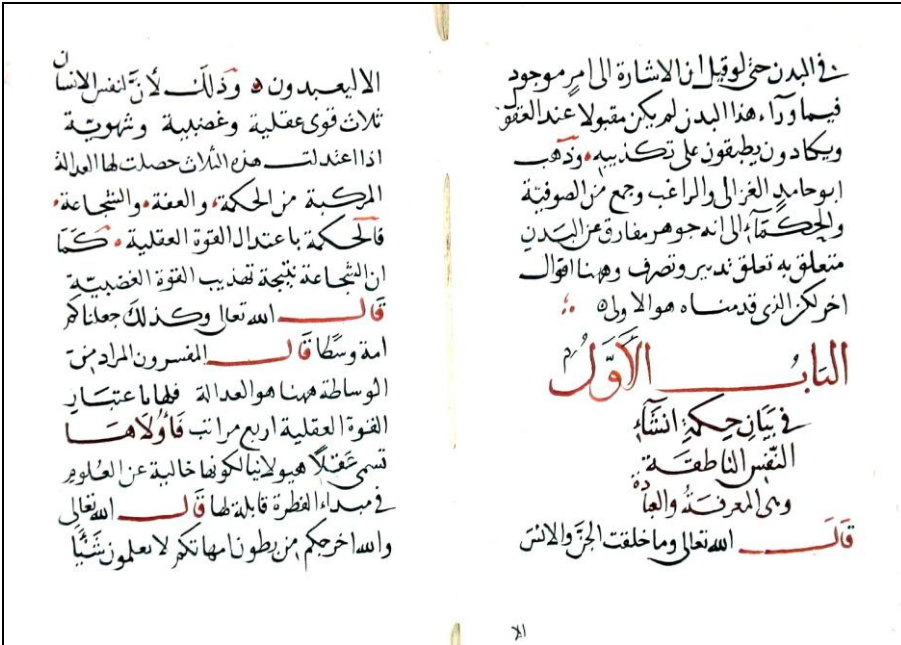 في البدن حتى لو قيل ان الاشارة الى امر موجود
فيما ورآء هذا البدن لم يكن مقبولا عند العقول
ويكادون يطبقون على تكذيبه وذهب
ابو حامد الغزالي والراغب وجمع من الصوفية
والحكمآء الى انه جوهر مفارق عن البدن
متعلق به تعلق تدبير وتصرف وههنا اقوال
اخر لكن الذي قدمناه هو الاولى
الباب الأول
في بيان حكمة انشآء
النفس الناطقة
وهي المعرفة والعبادة
قال الله تعالى وما خلقت الجن والانس
الا
الا ليعبدون وذلك لأن لنفس الانسان
ثلاث قوى عقلية وغضبية وشهوية
اذا اعتدلت هذه الثلاث حصلت لها العدالة
المركبة من الحكمة والعفة والشجاعة
فالحكمة باعتدال القوة العقلية كما
ان الشجاعة نتيجة تهذيب القوة الغضبية
قال الله تعالى وكذلك جعلناكم
امة وسطا قال المفسرون المراد من
الوساطة ههنا هو العدالة فلها باعتبار
القوة العقلية اربع مراتب فأولاها
تسمى عقلا هيولانيا لكونها خالية عن العلوم
في مبداء الفطرة قابلة لها قال الله تعالى
والله اخرجكم من بطون امهاتكم لا تعلمون شيئا